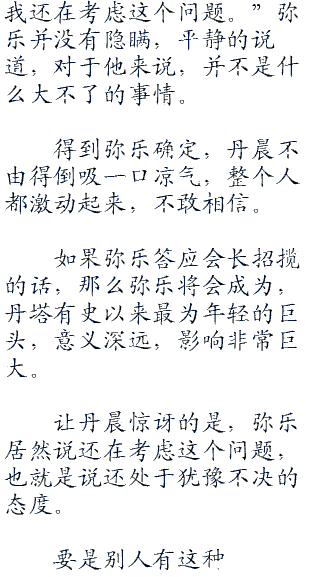 我还在考虑这个问题。”弥
乐并没有隐瞒，平静的说
道，对于他来说，并不是什
么大不了的事情。
得到弥乐确定，丹晨不
由得倒吸一口凉气，整个人
都激动起来，不敢相信。
如果弥乐答应会长招揽
的话，那么弥乐将会成为，
丹塔有史以来最为年轻的巨
头，意义深远，影响非常巨
大。
让丹晨惊讶的是，弥乐
居然说还在考虑这个问题，
也就是说还处于犹豫不决的
态度。
要是别人有这种